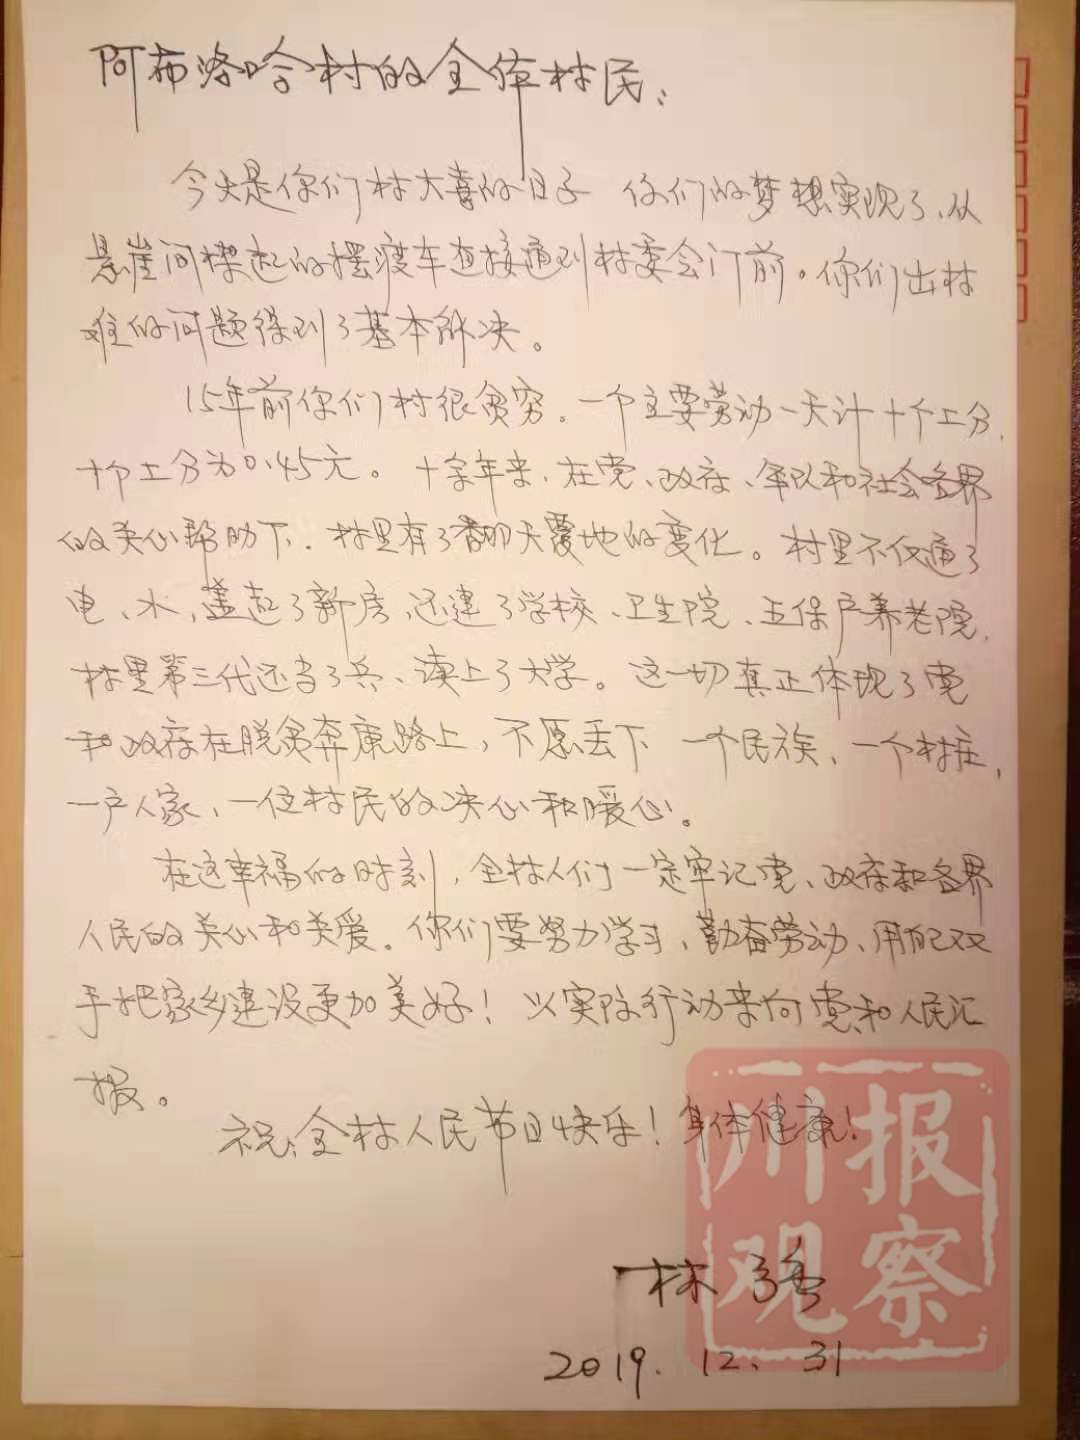 阿布洛哈村的全体村民：
今天是你们村大喜的日子 你们的梦想实现了、从
悬崖间架起的摆渡车直接通到村委会门前。你们出村
难的问题得到了基本解决。
15年前你们村很贫穷。一个主要劳动一天计十个工分，
十个工分为0.45元。十余年来，在党、政府、军队和社会各界
的关心帮助下．村里有了翻天覆地的变化。村里不仅通了
电、水，盖起了新房，还建了学校、卫生院、五保户养老院，
村里第三代还当了兵、读上了大学。这一切真正体现了党
和政府在脱贫奔康路上，不愿丢下 一个民族、一个村庄，
一户人家、一位村民的决心和暖心。
在这幸福的时刻，全村人们一定牢记党、政府和各界
人民的关心和关爱。你们要努力学习、勤奋劳动、用自己双
手把家乡建设更加美好！以实际行动来向党和人民汇
报。
祝：全村人民节日快乐！身体健康！
林强
2019.12.31
川报
观察